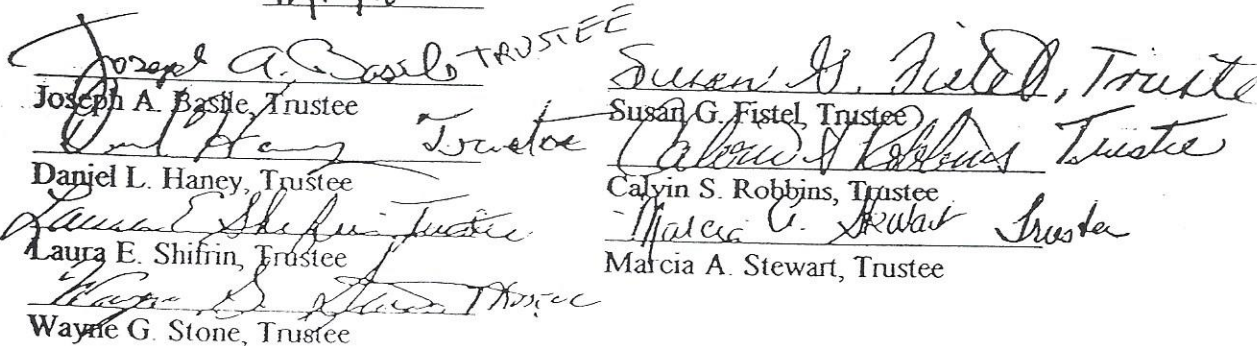 Joseph A. Basile TRUSTEE
Joseph A. Basile, Trustee
Haney Trustee
Daniel L. Haney, Trustee
Laura E. Shifrin Trustee
Laura E. Shifrin, Trustee
Wayne G. Stone Trustee
Wayne G. Stone, Trustee
Susan G. Fistel, Trustee
Susan G. Fistel, Trustee
Calvin S Robbins Trustee
Calvin S. Robbins, Trustee
Marcia A. Stewart Trustee
Marcia A. Stewart, Trustee